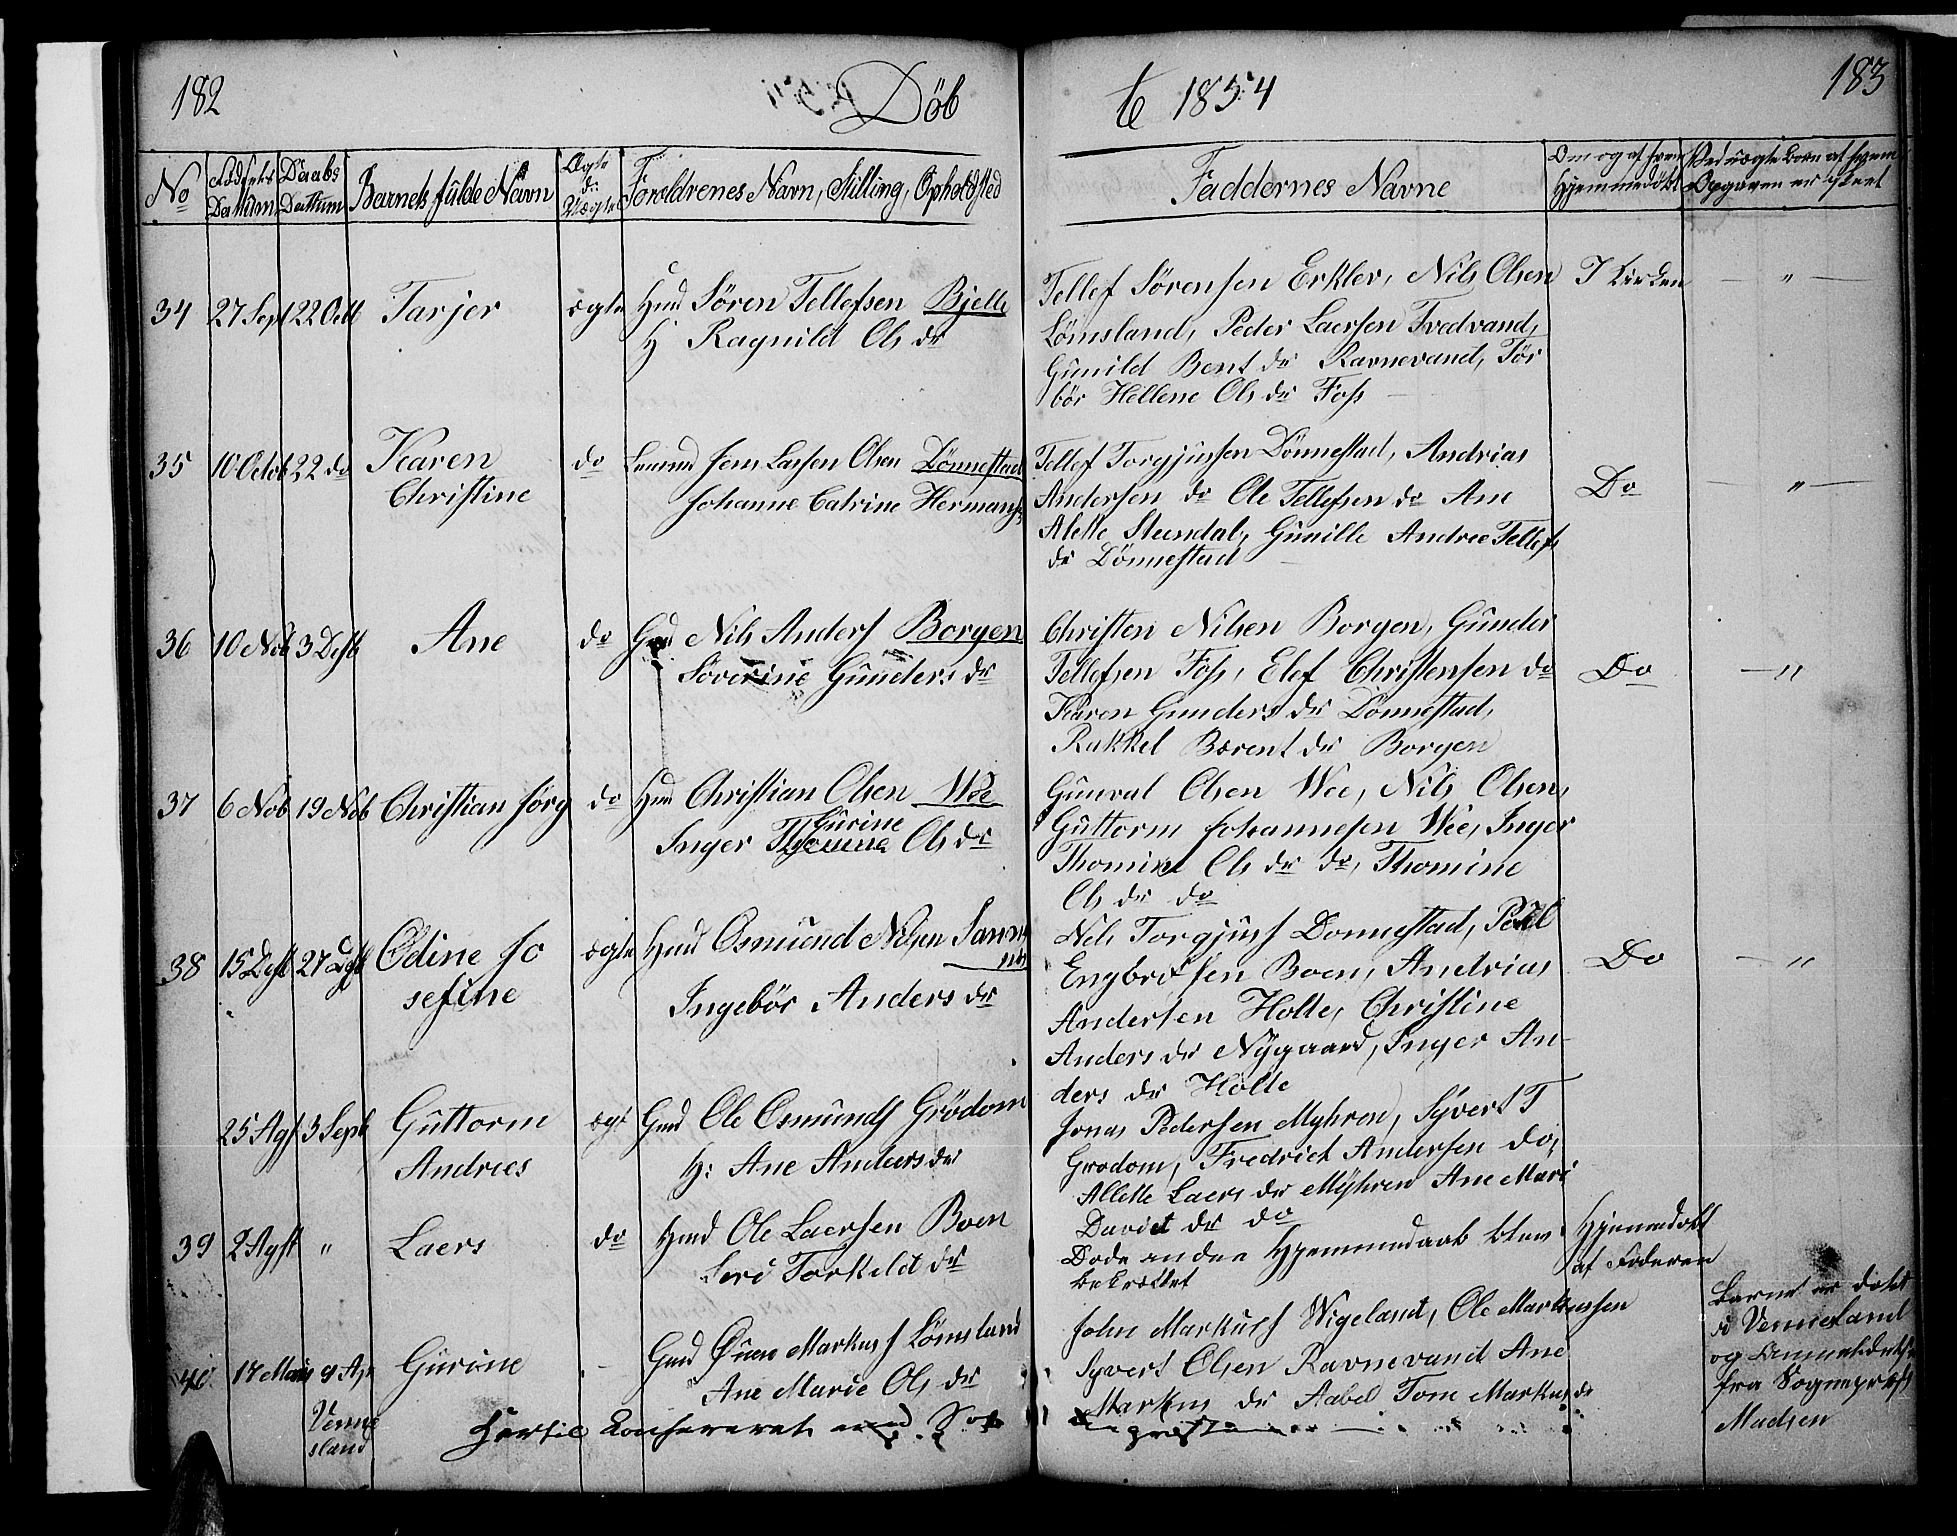 182
Döb
te 1854
183
No
Födsels Dattum
Daabs Dattum
Barnets fulde Navn
Ægte do Uægte
Foreldrenes Navn, Stilling, Opholdsted
Faddernes Navne
Om og af hvem Hjemmedöbt
Ved uægte Born af hvem Opgaven er skeet
34 27 Sept 22 Octt Tarjer ægte Hmd Sören Tellefsen Bjelle
H Ragnild Ols dr
Tellef Sörensen Erklev, Nils Olsen
Lömsland, Peder Laersen Tvedvand,
Gunild Bent dr Ravnevand, Tör
bör Hellene Ols dr Foss
I Kirken — " —
35 10 Octob 22 do Karen do Jens Larsen Olsen Dönnestad
Christine Johanne Catrine Hermans
Tellef Torgjussen Dönnestad, Andrias
Andersen do Ole Tellefsen do Ane
Alette Steendal, Gunille Andree Tellefs
dr Dönnestad
Do — " —
36 10 Nob 3 Desb Ane do Gmd Nils Anders Borgen
Söverine Gunders dr
Christen Nilsen Borgen, Gunder
Tellefsen Foss, Elef Christensen do
Karen Gunders dr Dönnestad,
Rakkel Bærent dr Borgen
Do — "
37 6 Nob 19 Nob Christian Jörg do Hmd Christian Olsen Wee
Gurine
Inger Ols dr
Gunval Olsen Wee, Nils Olsen,
Guttorm Johannesen Wee, Inger
Thomine Ols dr do, Thomine
Ols dr do
38 15 Desb 27 Desb Odine Jo ægte Hmd Osmund Nilsen
sefine Ingebör Anders dr
Nils Torgjuss Donnestad, Poul
Engbretsen Boen, Andrias
Andersen Holte, Christine
Anders dr Nygaard, Inger An-
ders dr Holte
Do — "
25 Agst 3 Sept Guttorm ægt Gmd Ole Osmunds Grödom
Andrees H: Ane Anders dr
Jonas Pedersen Myhren, Syvert T
Grodom, Fredrick Andersen do,
Allette Laers dr Myhren Ane Mari
David dr do
39 2 Agst " Laers do Hmd Ole Laersen Boen
Torkild dr
Dode inden Hjemmedaab blev
bekræftet
Hjemmedöbt
af Faderen
40 17 Marts 9 Apr Gurine - Gmd Ouen Markuss Lömsland
Ane Marie Ols dr
Vennesland
John Markuss Wigeland, Ole Markussen
Syvert Olsen Ravnevand Ane
Markus dr Aabel Tone Markus dr
Barnet er döbt
i Vennesland
og Anmeldelse
fra Sogneprest
Madsen
Hertil Konfereret med